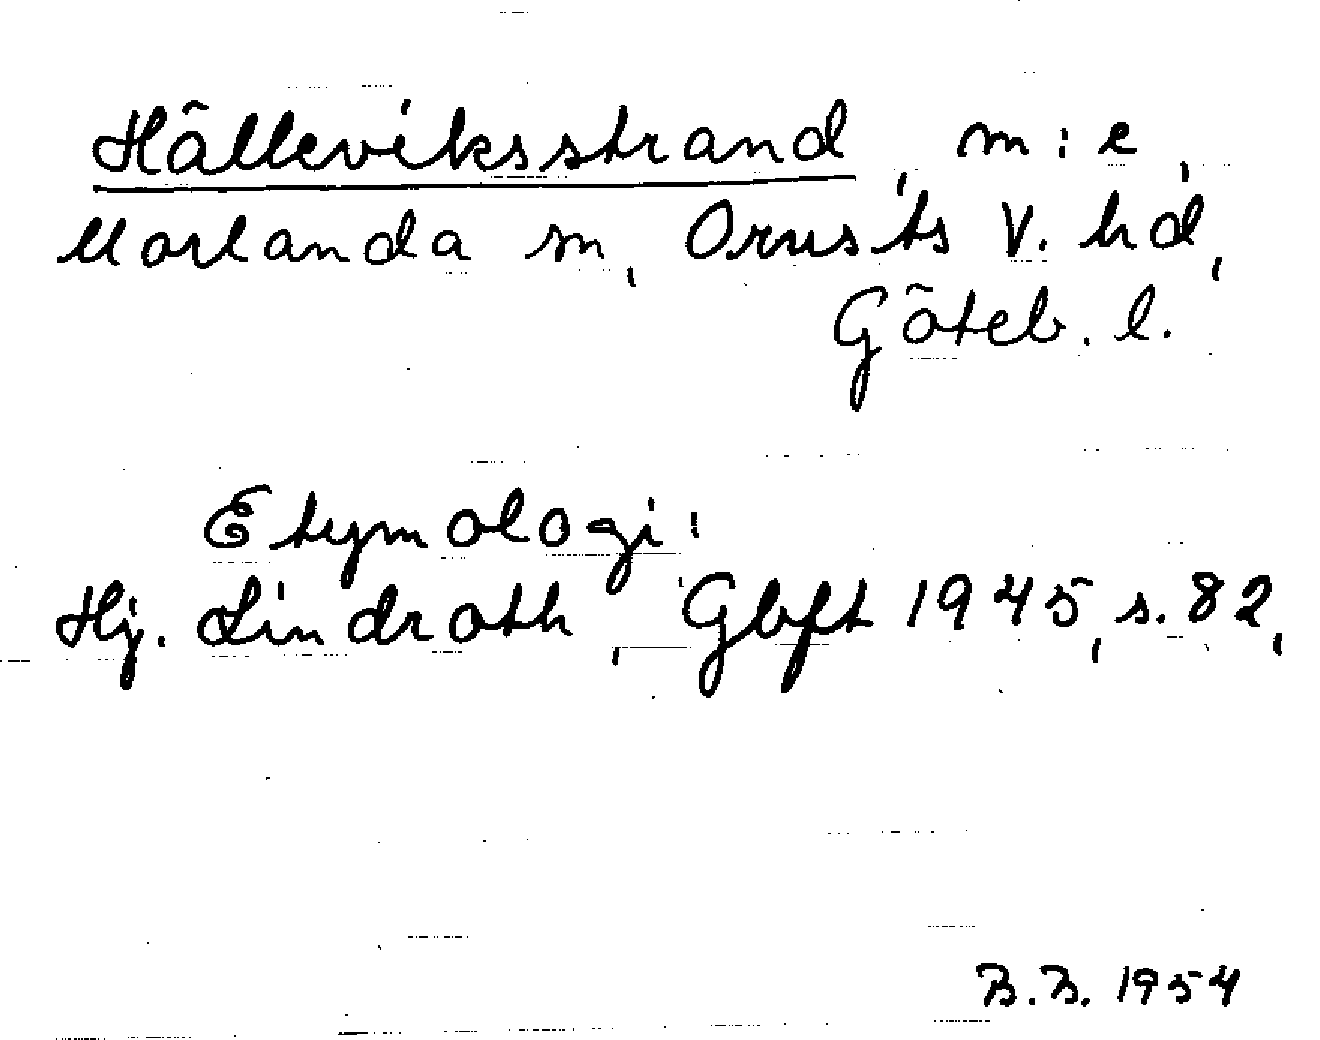 Hälleviksstrand m:e,
Morlanda sn, Orusts V. hd,
Göteb. l.
Etymologi:
Hj. Lindroth, Gbgft 1945, s. 82,
B.B. 1954